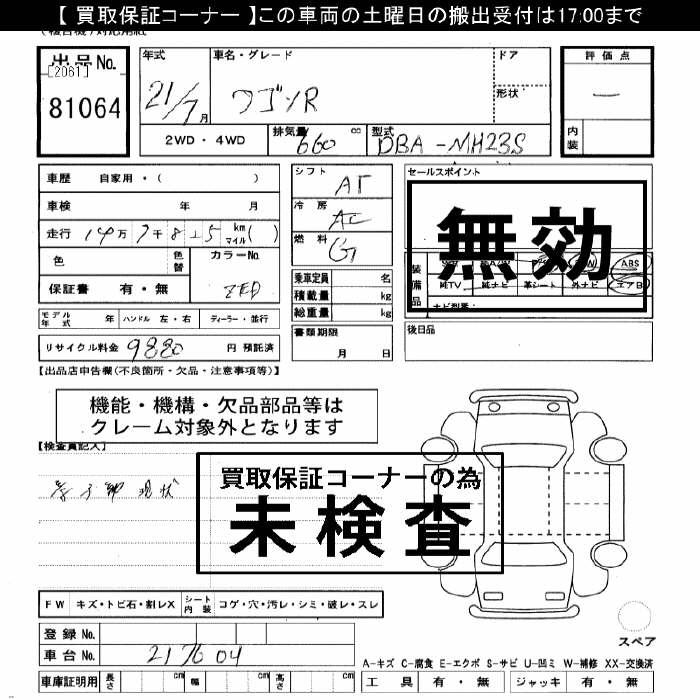 【 買取保証コーナー 】この車両の土曜日の搬出受付は17:00まで
出品No. [2061] 81064
年式 21/7月
車名・グレード ワゴンR
ドア
形状
評価点 —
内装
2WD・4WD
排気量 660 cc
型式 DBA-MH23S
車歴 自家用・( )
車検 年 月
走行 14万7千8 5 km マイル( )
色 色替
カラーNo. ZED
保証書 有・無
モデル年式 年 ハンドル 左・右 ディーラー・並行
リサイクル料金 9880 円 預託済
シフト AT
冷房 AC
燃料 G
乗車定員 名
積載量 kg
総重量 kg
書類期限 月 日
セールスポイント
無効
装備品 ABS
純TV 純ナビ 革シート 外ナビ エアB
ナビ型番:
後日品
【出品店申告欄(不良箇所・欠品・注意事項等)】
機能・機構・欠品部品等は
クレーム対象外となります
【検査員記入】
買取保証コーナーの為
未検査
現状
FW キズ・トビ石・割レX シート内装 コゲ・穴・汚レ・シミ・破レ・スレ
登録No.
車台No. 217604
車庫証明用 長さ cm 幅 cm 高さ cm
スペア
A-キズ C-腐食 E-エクボ S-サビ U-凹ミ W-補修 XX-交換済
工具 有・無 ジャッキ 有・無